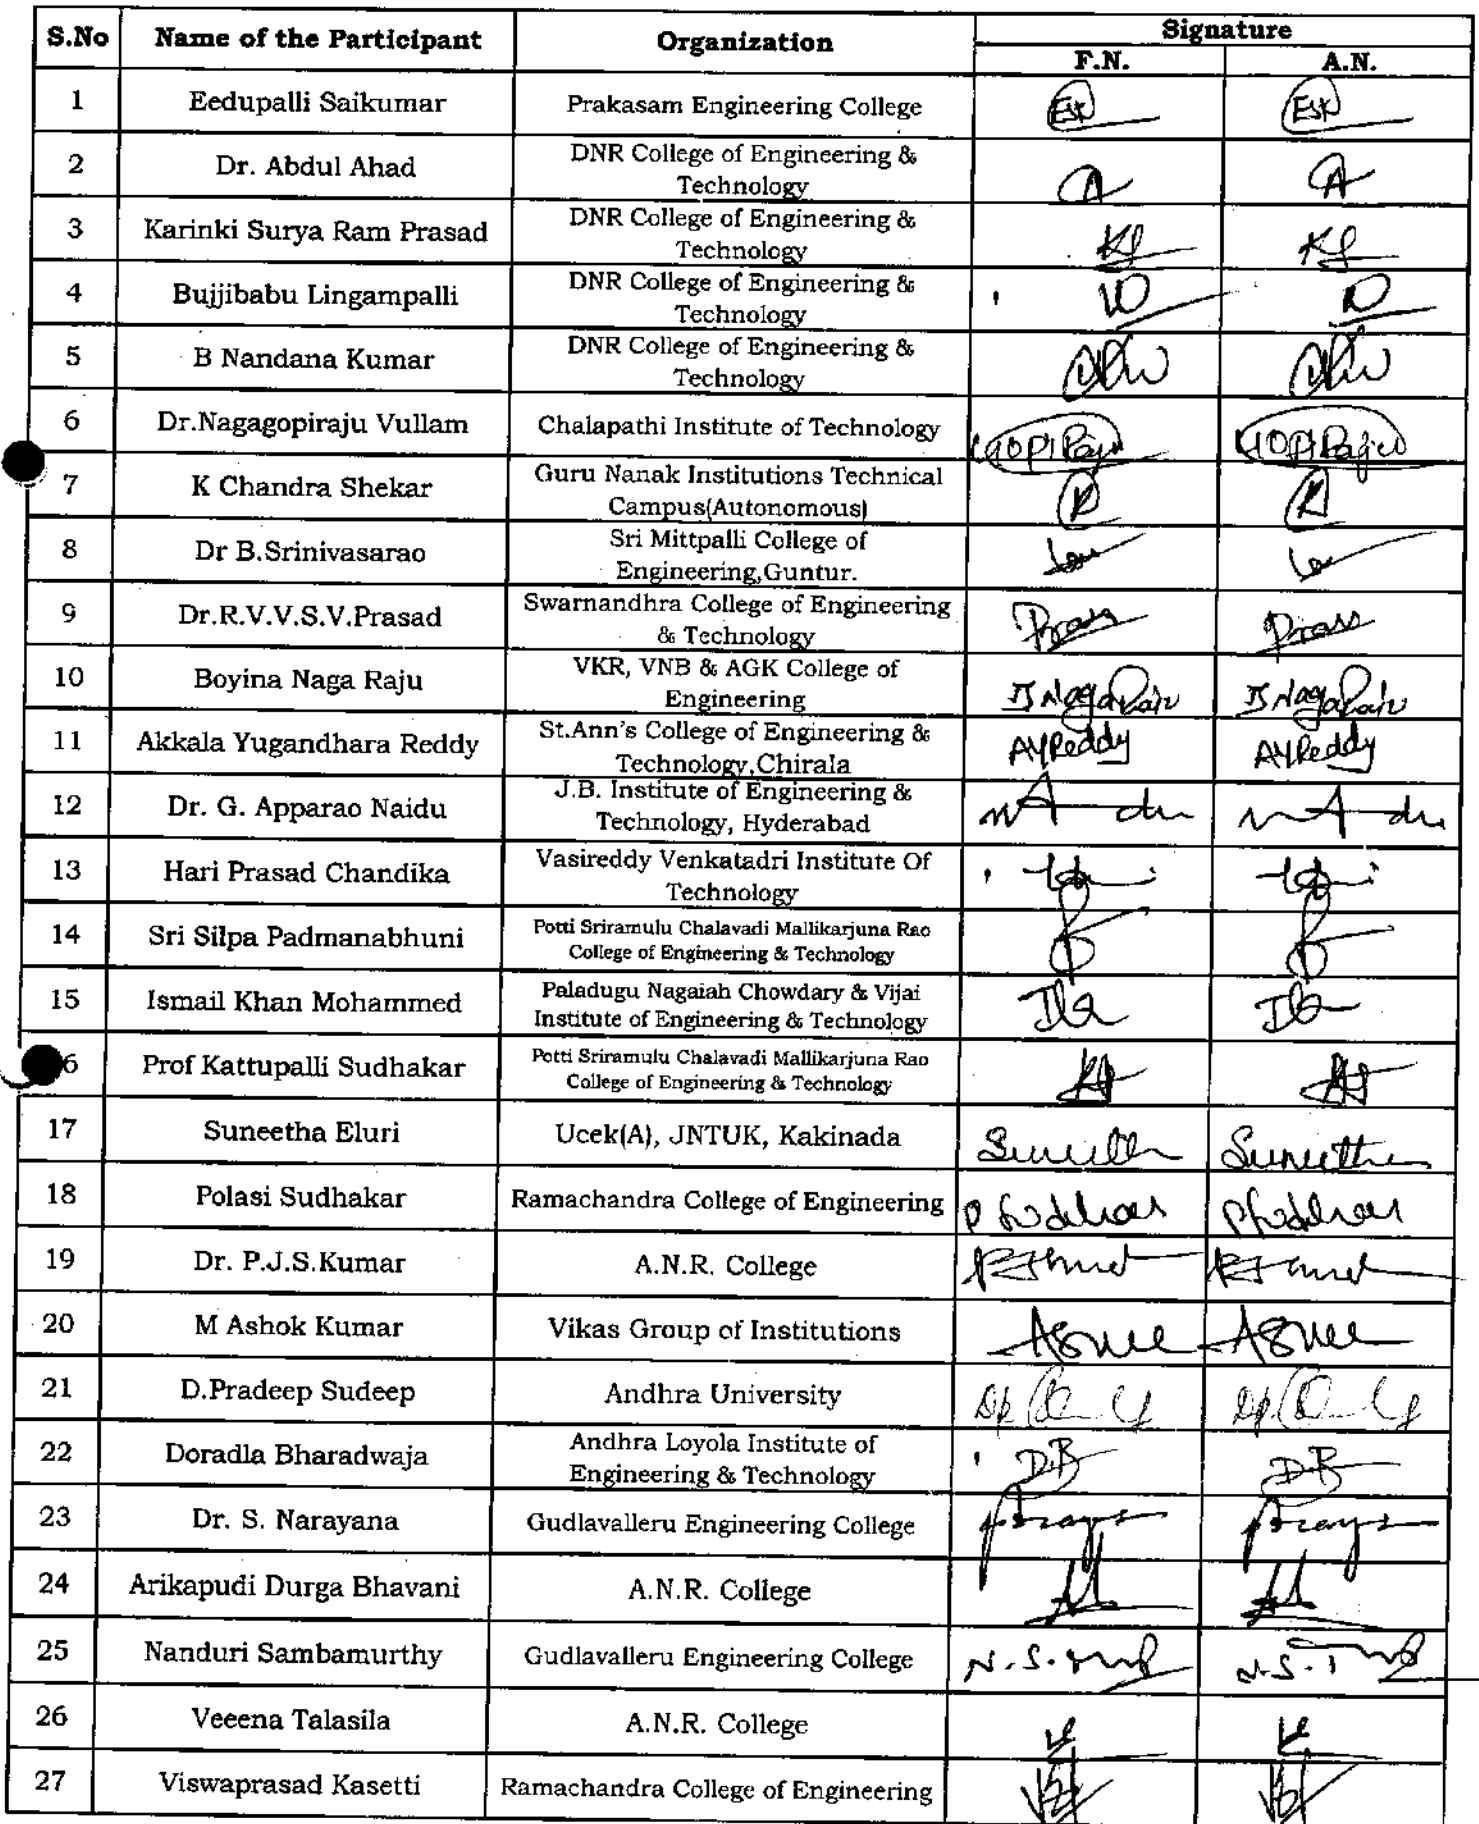 S.No Name of the Participant Organization Signature
F.N. A.N.
1 Eedupalli Saikumar Prakasam Engineering College ESK ESK
2 Dr. Abdul Ahad DNR College of Engineering &
Technology A A
3 Karinki Surya Ram Prasad DNR College of Engineering &
Technology
4 Bujjibabu Lingampalli DNR College of Engineering &
Technology
5 B Nandana Kumar DNR College of Engineering &
Technology
6 Dr.Nagagopiraju Vullam Chalapathi Institute of Technology GOPI Raju GOPI Raju
7 K Chandra Shekar Guru Nanak Institutions Technical
Campus(Autonomous)
8 Dr B.Srinivasarao Sri Mittpalli College of
Engineering,Guntur.
9 Dr.R.V.V.S.V.Prasad Swarnandhra College of Engineering
& Technology
10 Boyina Naga Raju VKR, VNB & AGK College of
Engineering B NagaRaju B NagaRaju
11 Akkala Yugandhara Reddy St.Ann's College of Engineering &
Technology,Chirala AYReddy AYReddy
12 Dr. G. Apparao Naidu J.B. Institute of Engineering &
Technology, Hyderabad
13 Hari Prasad Chandika Vasireddy Venkatadri Institute Of
Technology
14 Sri Silpa Padmanabhuni Potti Sriramulu Chalavadi Mallikarjuna Rao
College of Engineering & Technology
15 Ismail Khan Mohammed Paladugu Nagaiah Chowdary & Vijai
Institute of Engineering & Technology
6 Prof Kattupalli Sudhakar Potti Sriramulu Chalavadi Mallikarjuna Rao
College of Engineering & Technology
17 Suneetha Eluri Ucek(A), JNTUK, Kakinada
18 Polasi Sudhakar Ramachandra College of Engineering P Sudhakar P Sudhakar
19 Dr. P.J.S.Kumar A.N.R. College
20 M Ashok Kumar Vikas Group of Institutions
21 D.Pradeep Sudeep Andhra University
22 Doradla Bharadwaja Andhra Loyola Institute of
Engineering & Technology D.B D.B
23 Dr. S. Narayana Gudlavalleru Engineering College
24 Arikapudi Durga Bhavani A.N.R. College
25 Nanduri Sambamurthy Gudlavalleru Engineering College
26 Veeena Talasila A.N.R. College
27 Viswaprasad Kasetti Ramachandra College of Engineering